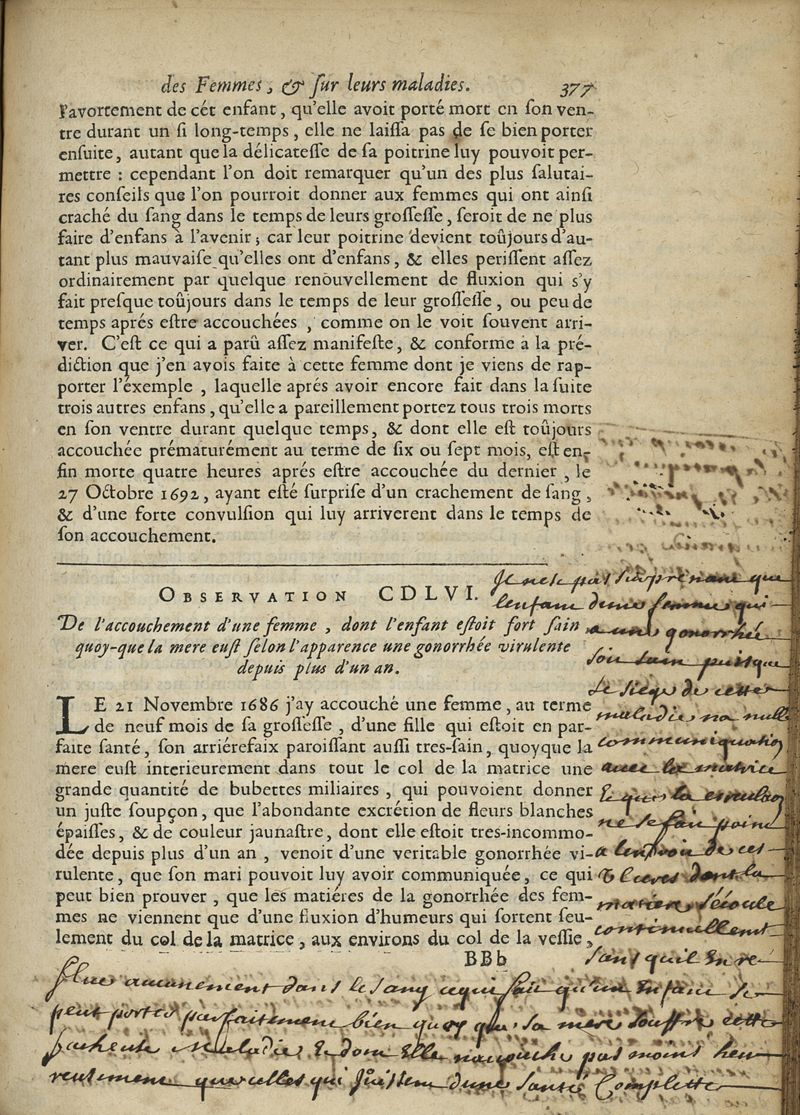 des Femmes, & ſur leurs maladies. 377
l'avortement de cét enfant, qu'elle avoit porté mort en ſon ven-
tre durant un ſi long-temps, elle ne laiſſa pas de ſe bien porter
enſuite, autant que la délicateſſe de ſa poitrine luy pouvoit per-
mettre : cependant l'on doit remarquer qu'un des plus ſalutai-
res conſeils que l'on pourroit donner aux femmes qui ont ainſi
craché du ſang dans le temps de leurs groſſeſſe, ſeroit de ne plus
faire d'enfans à l'avenir ; car leur poitrine devient toûjours d'au-
tant plus mauvaiſe qu'elles ont d'enfans, & elles periſſent aſſez
ordinairement par quelque renouvellement de fluxion qui s'y
fait preſque toûjours dans le temps de leur groſſeſſe, ou peu de
temps aprés eſtre accouchées, comme on le voit ſouvent arri-
ver. C'eſt ce qui a parû aſſez manifeſte, & conforme à la pré-
diction que j'en avois faite à cette femme dont je viens de rap-
porter l'éxemple, laquelle aprés avoir encore fait dans la ſuite
trois autres enfans, qu'elle a pareillement portez tous trois morts
en ſon ventre durant quelque temps, & dont elle eſt toûjours
accouchée prématurément au terme de ſix ou ſept mois, eſt en-
fin morte quatre heures aprés eſtre accouchée du dernier, le
27 Octobre 1692, ayant eſté ſurpriſe d'un crachement de ſang,
& d'une forte convulſion qui luy arriverent dans le temps de
ſon accouchement.
OBSERVATION CDLVI.
De l'accouchement d'une femme, dont l'enfant eſtoit fort ſain
quoy-que la mere euſt ſelon l'apparence une gonorrhée virulente
depuis plus d'un an.
LE 21 Novembre 1686 j'ay accouché une femme, au terme
de neuf mois de ſa groſſeſſe, d'une fille qui eſtoit en par-
faite ſanté, ſon arriérefaix paroiſſant auſſi tres-ſain, quoyque la
mere euſt interieurement dans tout le col de la matrice une
grande quantité de bubettes miliaires, qui pouvoient donner
un juſte ſoupçon, que l'abondante excrétion de fleurs blanches
épaiſſes, & de couleur jaunaſtre, dont elle eſtoit tres-incommo-
dée depuis plus d'un an, venoit d'une veritable gonorrhée vi-
rulente, que ſon mari pouvoit luy avoir communiquée, ce qui
peut bien prouver, que les matiéres de la gonorrhée des fem-
mes ne viennent que d'une fluxion d'humeurs qui ſortent ſeu-
lement du col de la matrice, aux environs du col de la veſſie,
BBb
Il nest pas surprenant que
lenfant dune femme qui
a une gonorrhée
soit sain puisque
le siege de cette
maladie na nulle
communiquation
avec la matrice
et que la
ne se fait point
a de ces
ulceres dont la
matiere sécoule
continuellement
sans quil en re
flue aucunement dans le sang ce qui fait qu'un enfant se
peut porter parfaitement bien quoy que sa mere souffre cette
maladie & dont elle pas moins heu
reusement que celles qui jouissent dune santé complette